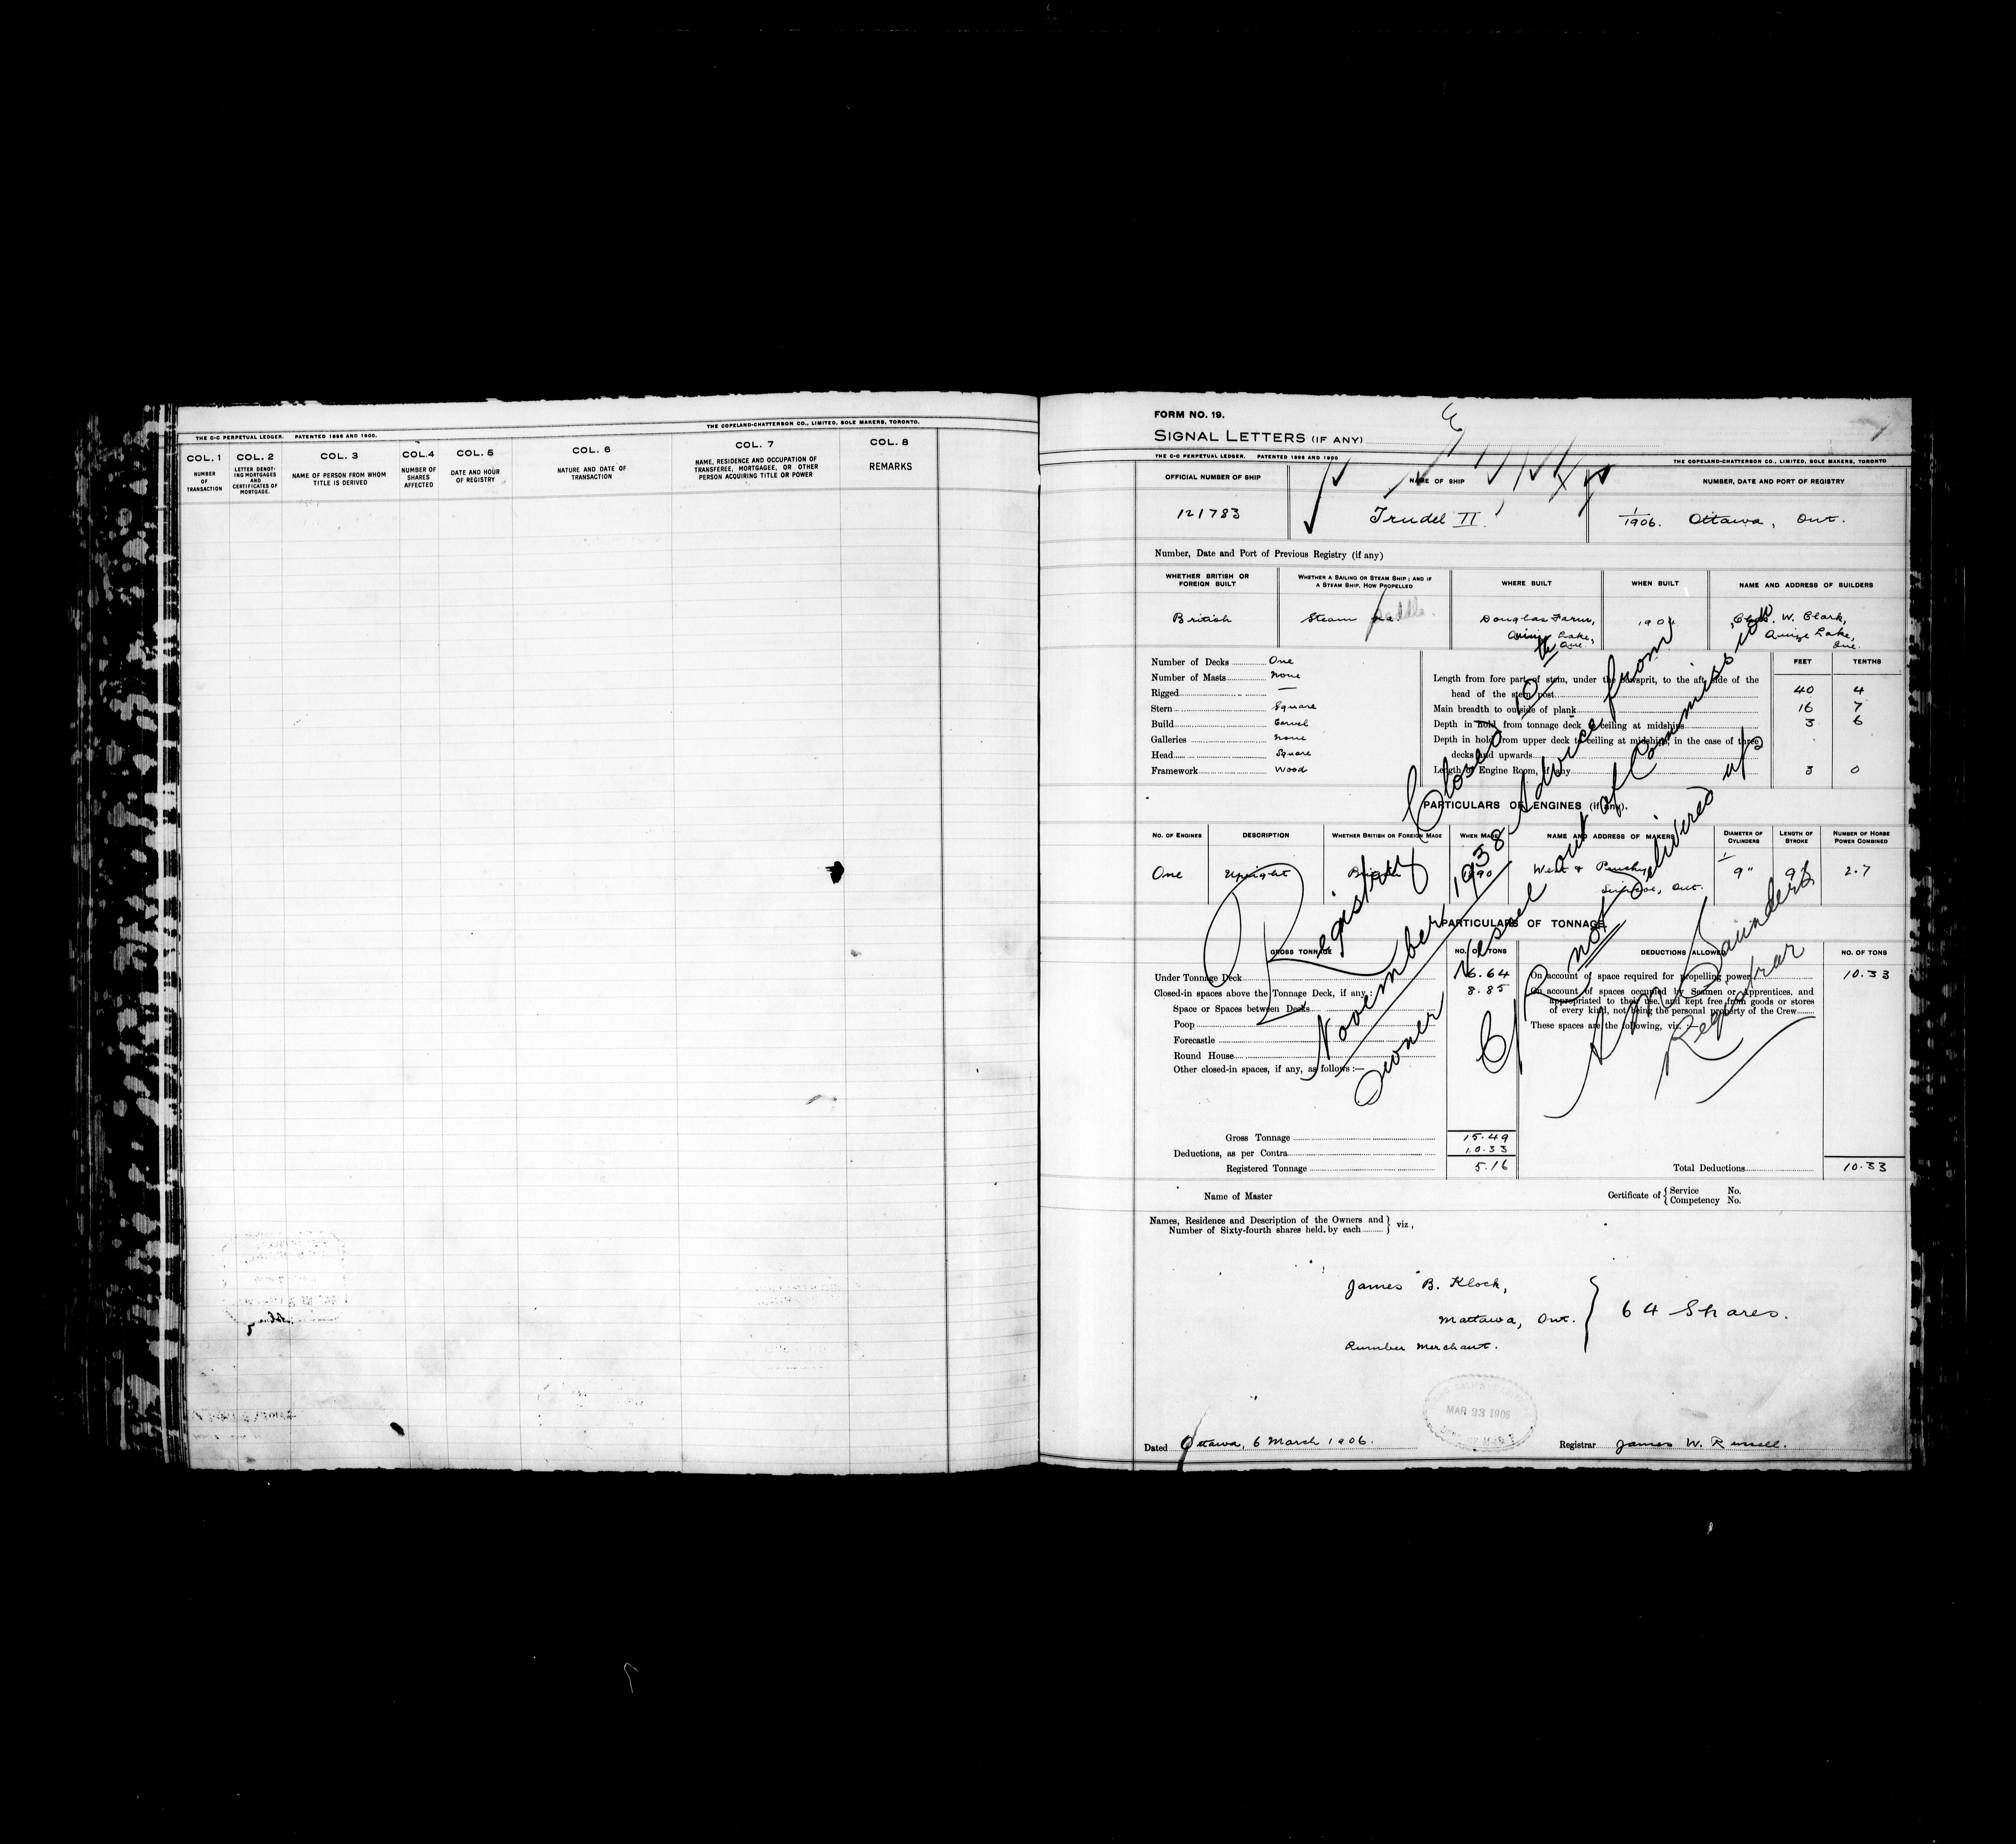 THE C-C PERPETUAL LEDGER. PATENTED 1896 AND 1900.
THE COPELAND-CHATTERSON CO., LIMITED, SOLE MAKERS, TORONTO.
COL. 1
COL. 2
COL. 3
COL.4
COL. 5
COL. 6
COL. 7
COL. 8
NUMBER OF TRANSACTION
LETTER DENOTING MORTGAGES AND CERTIFICATES OF MORTGAGE.
NAME OF PERSON FROM WHOM TITLE IS DERIVED
NUMBER OF SHARES AFFECTED
DATE AND HOUR OF REGISTRY
NATURE AND DATE OF TRANSACTION
NAME, RESIDENCE AND OCCUPATION OF TRANSFEREE, MORTGAGEE, OR OTHER PERSON ACQUIRING TITLE OR POWER
REMARKS
FORM NO. 19.
SIGNAL LETTERS (IF ANY)
THE C-C PERPETUAL LEDGER. PATENTED 1896 AND 1900
THE COPELAND-CHATTERSON CO., LIMITED, SOLE MAKERS, TORONTO
OFFICIAL NUMBER OF SHIP
NAME OF SHIP
NUMBER, DATE AND PORT OF REGISTRY
121783
Trudel II.
1/1906. Ottawa, Ont.
Number, Date and Port of Previous Registry (if any)
WHETHER BRITISH OR FOREIGN BUILT
WHETHER A SAILING OR STEAM SHIP; AND IF A STEAM SHIP, HOW PROPELLED
WHERE BUILT
WHEN BUILT
NAME AND ADDRESS OF BUILDERS
British
Steam paddle.
Douglas Farm,
Quinze Lake,
Que.
190
W. Clark,
Quinze Lake,
Que.
Number of Decks One
Number of Masts None
Rigged —
Stern Square
Build Carvel
Galleries None
Head Square
Framework Wood
FEET TENTHS
Length from fore part of stem, under the bowsprit, to the aft side of the
head of the stern post 40 4
Main breadth to outside of plank 16 7
Depth in hold from tonnage deck to ceiling at midships 3 6
Depth in hold from upper deck to ceiling at midships, in the case of three
decks and upwards
Length of Engine Room, if any 3 0
PARTICULARS OF ENGINES (if any).
NO. OF ENGINES
DESCRIPTION
WHETHER BRITISH OR FOREIGN MADE
WHEN MADE
NAME AND ADDRESS OF MAKERS
DIAMETER OF CYLINDERS
LENGTH OF STROKE
NUMBER OF HORSE POWER COMBINED
One
Upright
British
West &
Simcoe, Ont.
9"
9
2.7
PARTICULARS OF TONNAGE.
GROSS TONNAGE
NO. OF TONS
DEDUCTIONS ALLOWED
NO. OF TONS
Under Tonnage Deck 6.64
Closed-in spaces above the Tonnage Deck, if any: 8.85
Space or Spaces between Decks
Poop
Forecastle
Round House
Other closed-in spaces, if any, as follows:—
On account of space required for propelling power 10.33
On account of spaces occupied by Seamen or Apprentices, and
appropriated to their use, and kept free from goods or stores
of every kind, not being the personal property of the Crew
These spaces are the following, viz. :—
Gross Tonnage 15.49
Deductions, as per Contra 10.33
Registered Tonnage 5.16
Total Deductions 10.33
Registry Closed 10th
November 1938 Advice from
owner Vessel out of Commission
C/R not Delivered up
Saunders
Registrar
Name of Master
Certificate of { Service No.
Competency No.
Names, Residence and Description of the Owners and
Number of Sixty-fourth shares held by each } viz,
James B. Klock,
Mattawa, Ont.
Lumber Merchant.
64 Shares.
MAR 23 1906
Dated Ottawa, 6 March 1906.
Registrar James W. Russell.